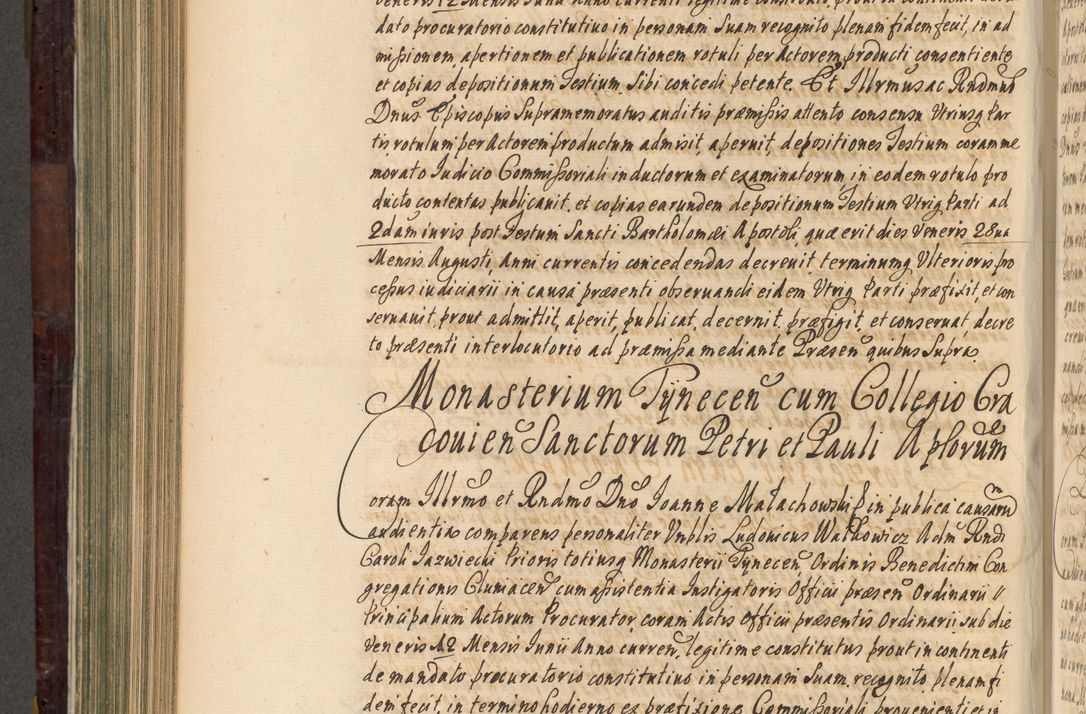 dato procuratorio constitutivo in personam Suam recognito plenam fidem fecit, in ad
mißionem, apertionem et publicationem rotuli per Actorem producti consentiente
et copias depositionum Testium Sibi concedi petente. Et Illrmus ac Rndmus
Dnus Episcopus Supramemoratus auditis præmißis attento consensu Utriusq Par
tis, rotulum per Actorem productum admisit, aperuit, depositiones Testium coram me
morato Judicio Commißoriali inductorum et examinatorum, in eodem rotulo pro
ducto contentas publicavit, et copias earundem depositionum Testium Utriq Parti ad
2dam iuris post Festum Sancti Bartholomæi Apostoli, quæ erit dies Veneris 28va
Mensis Augusti, Anni currentis concedendas decrevit, terminumq Ulterioris pro
ceßus iudiciarii in causa præsenti observandi eidem Utriq Parti præfixit, et con
servavit, prout admittit, aperit, publicat, decernit, præfigit, et conservat, decre
to præsenti interlocutorio ad præmißa mediante Præsen quibus Supra.
Monasterium Tÿnecen cum Collegio Cra
covien Sanctorum Petri et Pauli Aplorum
oram Illrmo et Rndmo Dno Joanne Małachowski in publica causarum
audientia comparens personaliter Vnblis Ludovicus Wałkowicz Adm Rndi
Caroli Jazwiecki Prioris totiusq Monasterii Tÿnecen Ordinis Benedictini Con
gregationis Cluniacen cum aßistentia Instigatoris Officii præsen Ordinarii
Principalium Actorum Procurator, coram Actis Officii præsentis Ordinarii, sub die
Veneris 12 Mensis Junii Anno curren, legitime constitutus prout in continenti
de mandato procuratorio constitutivo in personam Suam recognito plenam fi
dem fecit, in termino hodierno ex præfixione Commißoriali proveniente